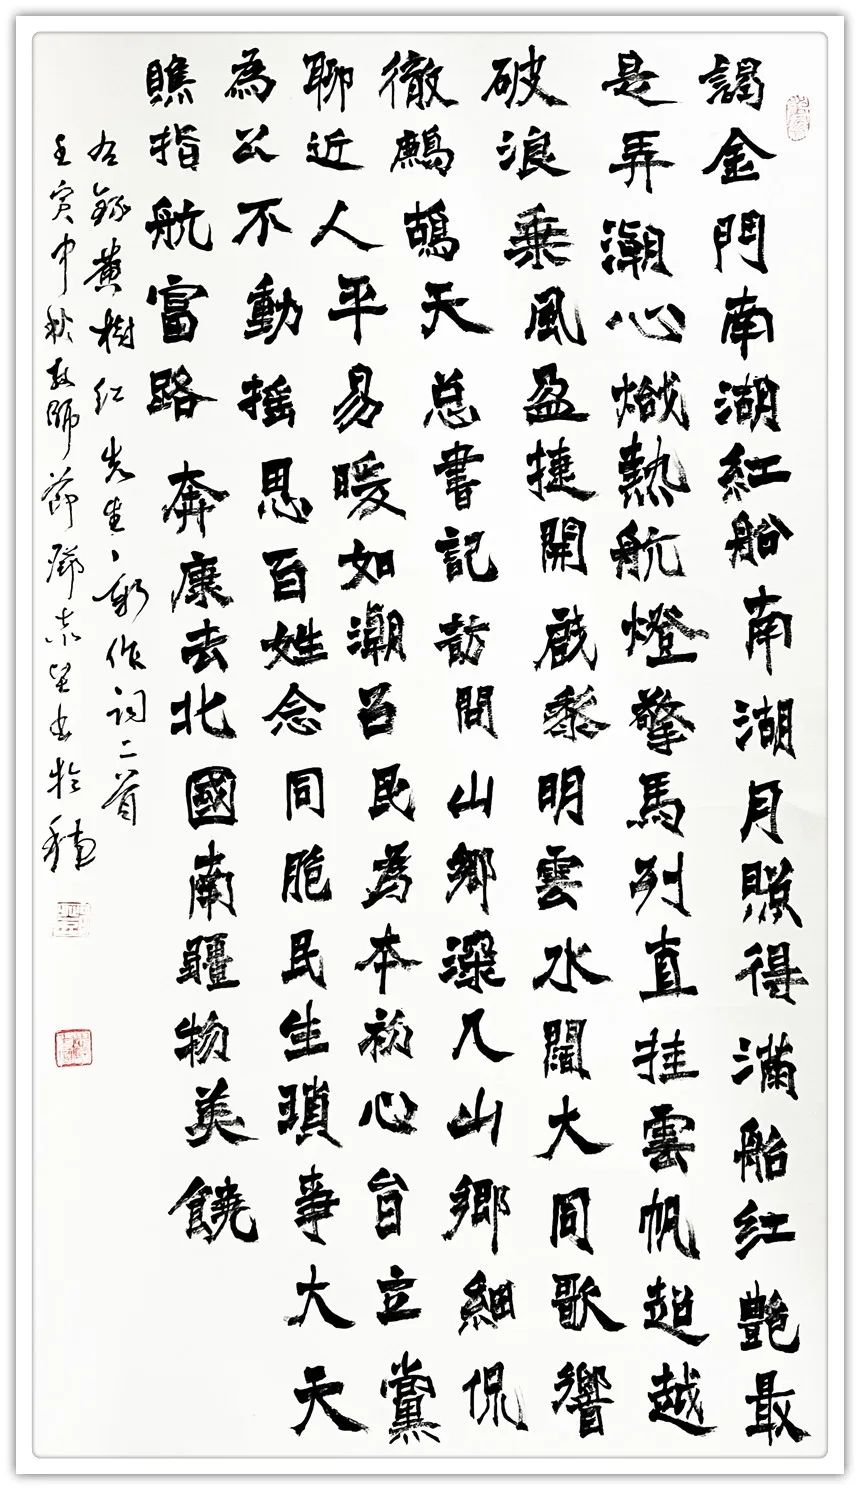 謁金門南湖紅船南湖月照得滿船紅艷最
是弄潮心熾熱航燈擎馬列直挂雲帆超越
破浪乘風盈捷開啟黎明雲水闊大同歌響
徹鷓鴣天总書記訪問山鄉深入山鄉細侃
聊近人平易暖如潮㠯民為本初心自立黨
為公不動摇思百姓念同胞民生瑣事大天
瞧指航富路奔康去北國南疆物美饒
右錄黃樹紅先生之新作詞二首
壬寅中秋教師節鄧志堅书於穗